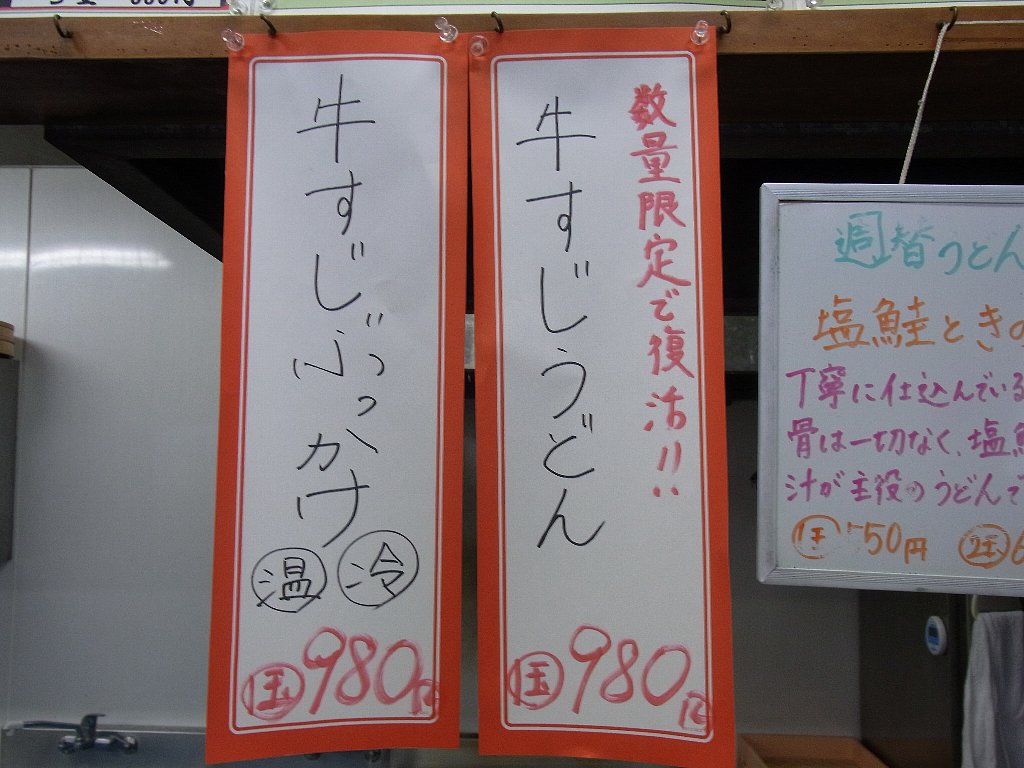 数量限定で復活!!
牛すじうどん
1玉 980円
牛すじぶっかけ
温 冷
1玉 980円
週替うどん
塩鮭ときの
丁寧に仕込んでいる
骨は一切なく、塩鮭
汁が主役のうどんで
1玉 550円 2玉 6